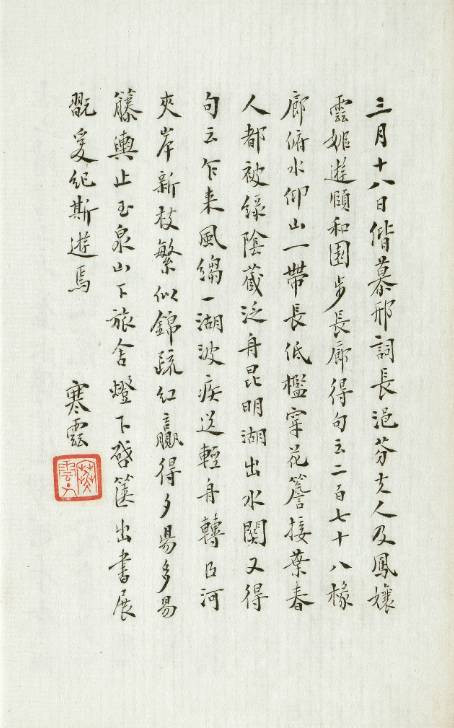 三月十八日偕慕邢詞長浥芬夫人及鳳孃
雲姬遊頤和園步長廊得句云二百七十八椽
廊俯水仰山一帶長低檻穿花簷接葉春
人都被綠陰藏泛舟昆明湖出水關又得
句云乍来風縐一湖波疾送輕舟轉玉河
夾岸新枝繁似錦疏紅贏得夕陽多易
籐輿止玉泉山下旅舍燈下啓篋出書展
翫爰紀斯遊焉
寒雲